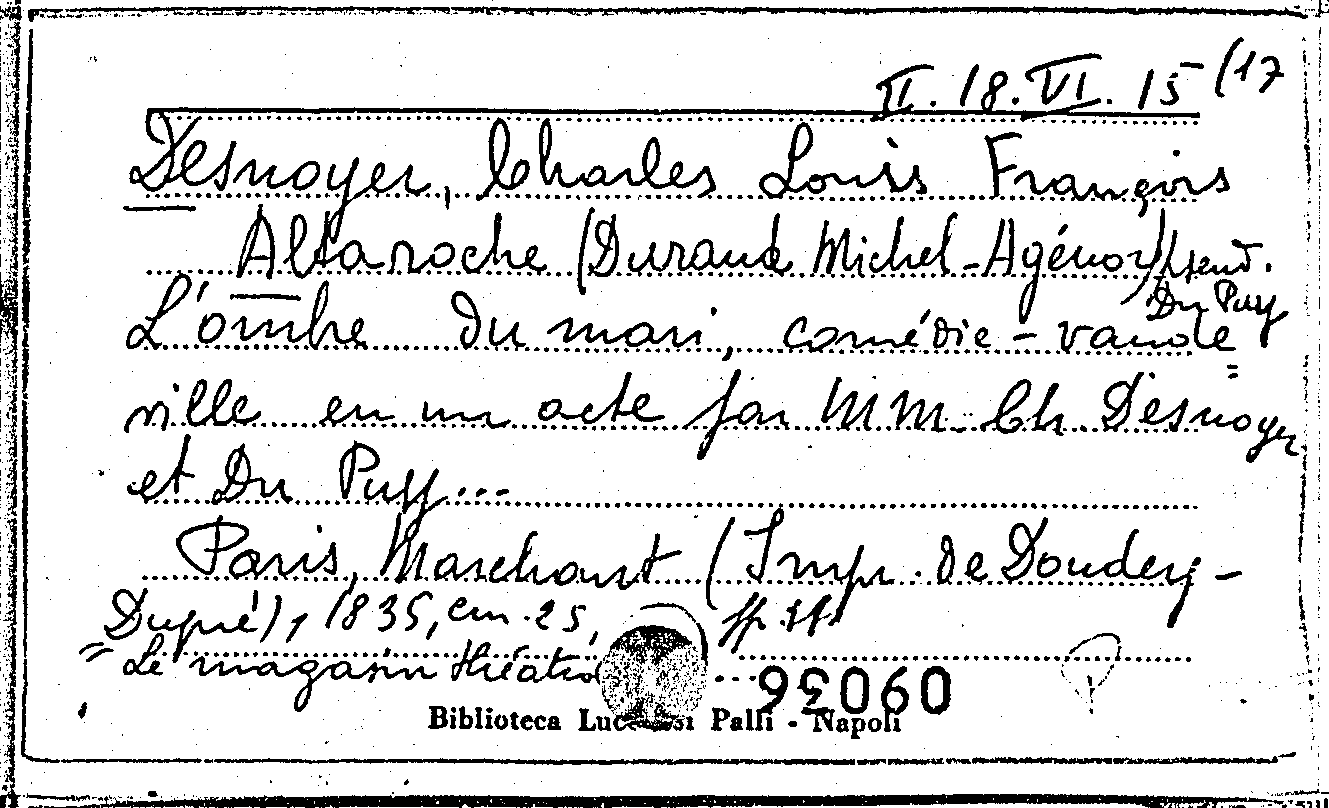 II. 18. VI. 15 (17
Desnoyer, Charles Louis François
Altaroche (Durand Michel-Agénor) pseud.
Du Puy
L'ombre du mari, comédie-vaude=
ville en un acte par MM. Ch. Desnoyer
et Du Puy...
Paris, Marchant (Imp. de Dondey-
Dupré), 1835, cm. 25,
"Le magasin théatr
09036
Biblioteca Lucchesi Palli - Napoli